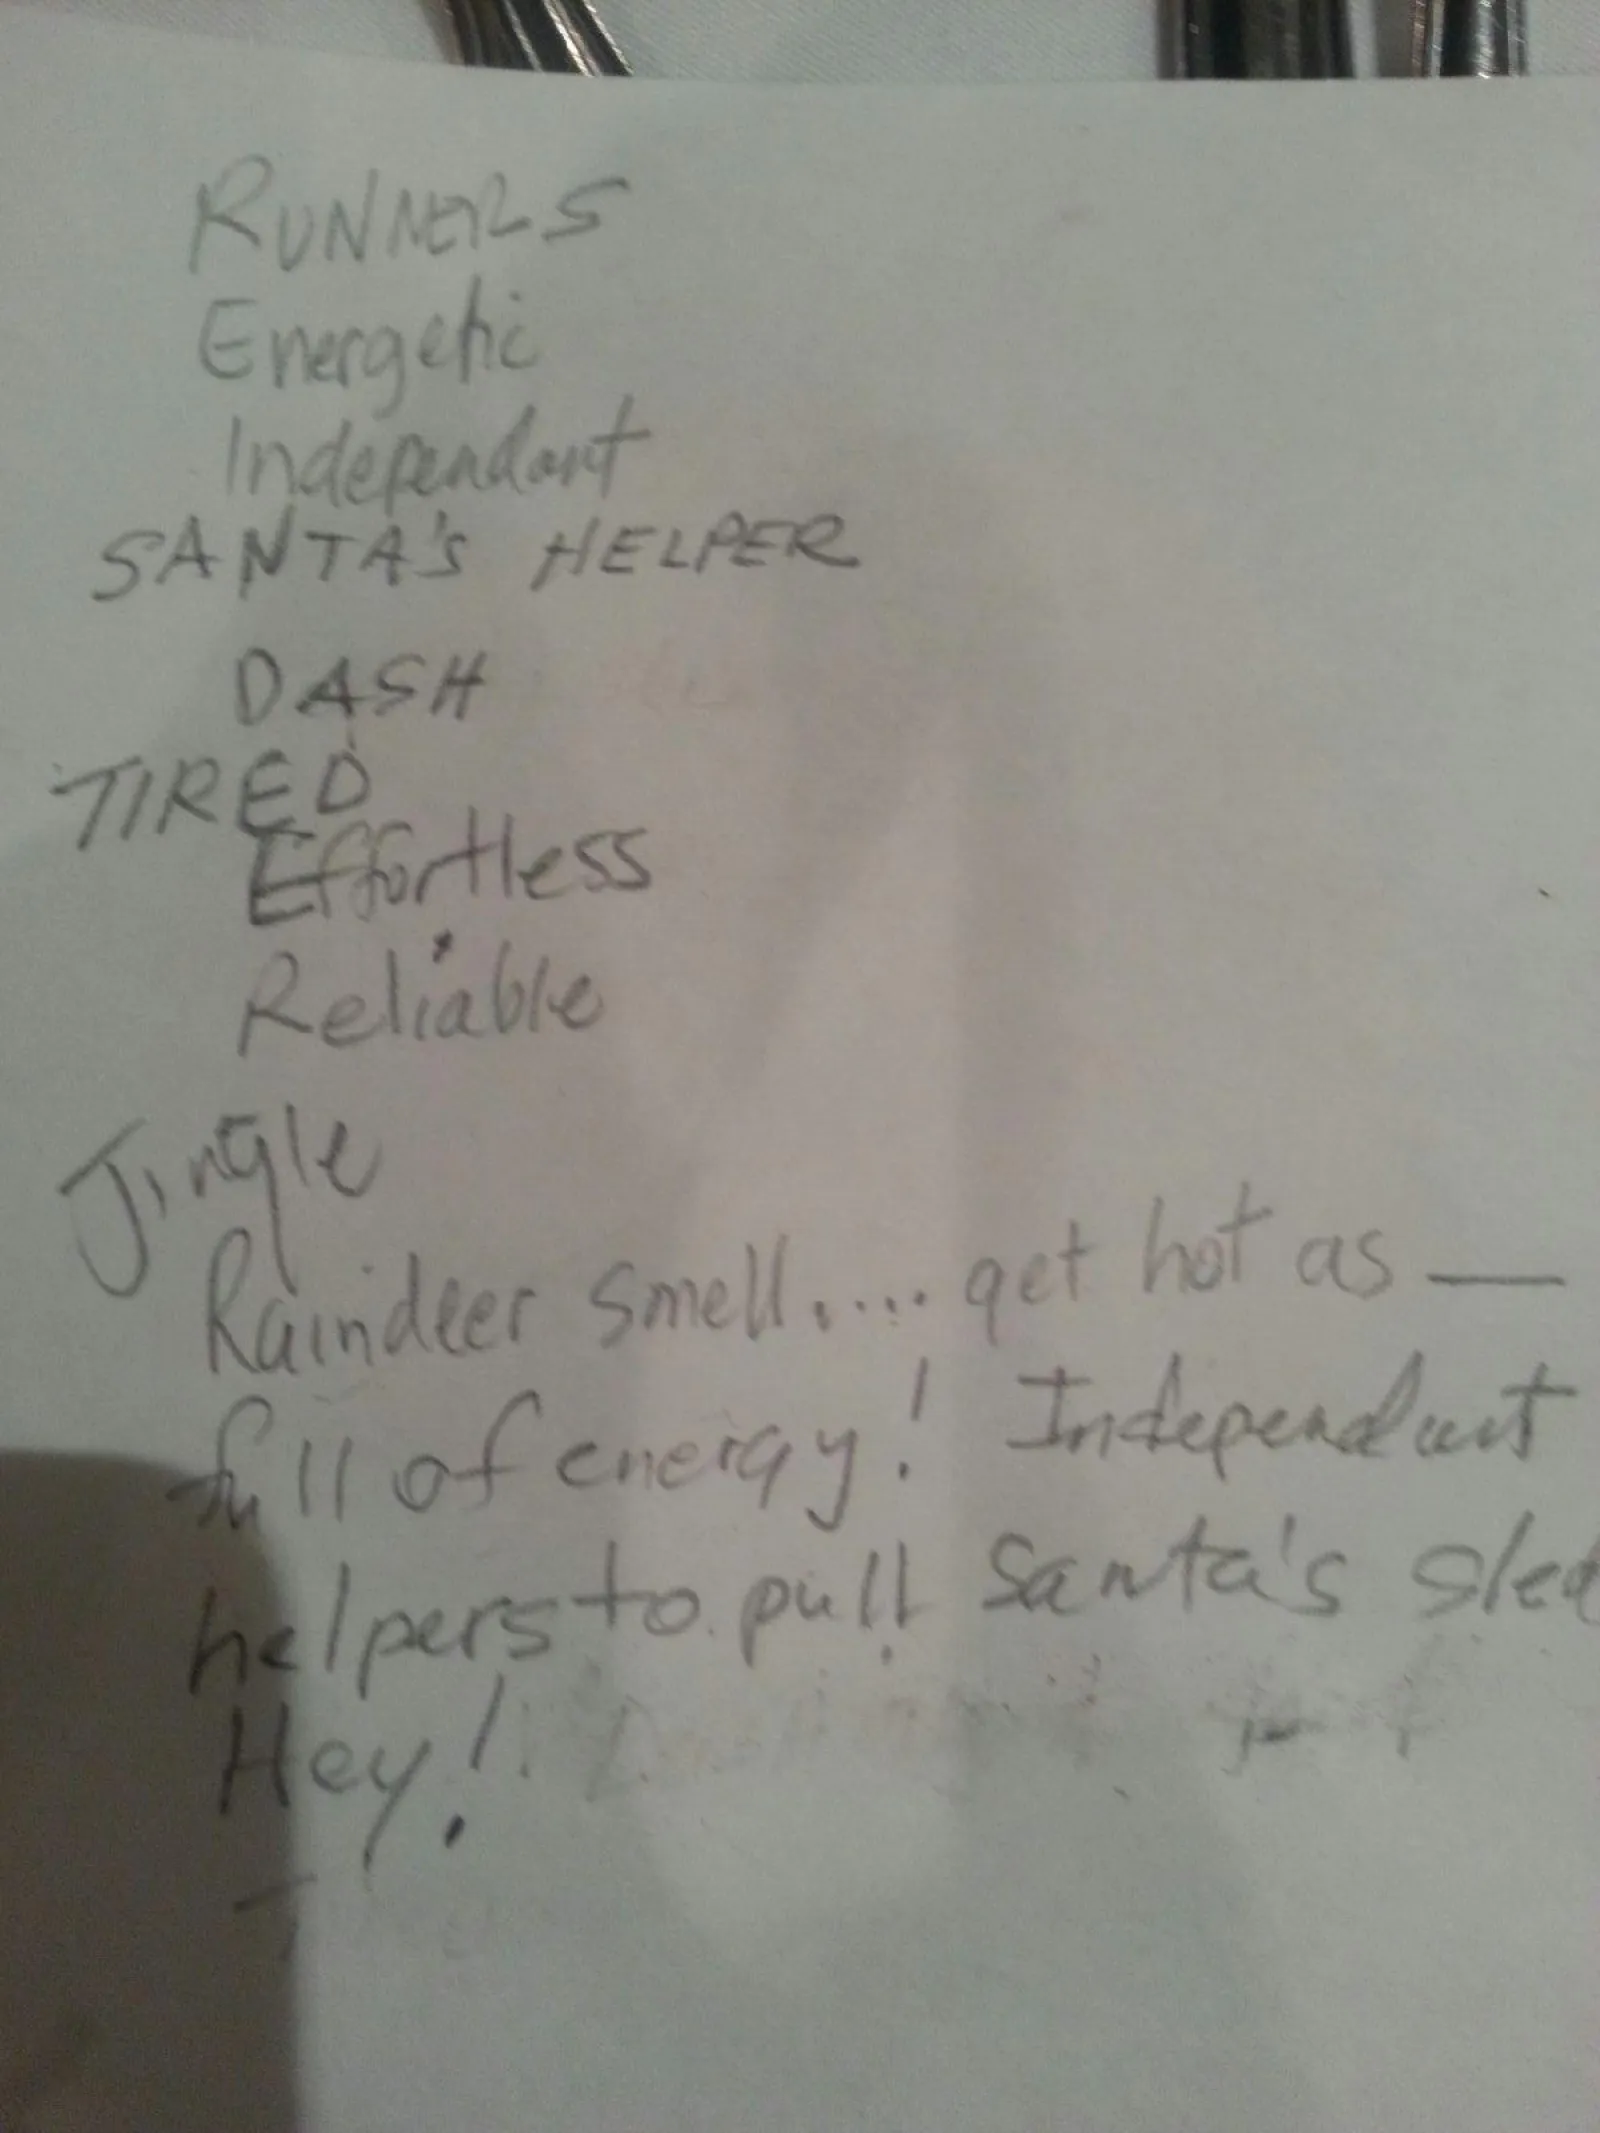 RUNNERS
Energetic
Independant
SANTA'S HELPER
DASH
TIRED
Effortless
Reliable
Jingle
Raindeer smell.... get hot as —
full of energy! Independant
helpers to pull Santa's sled
Hey!